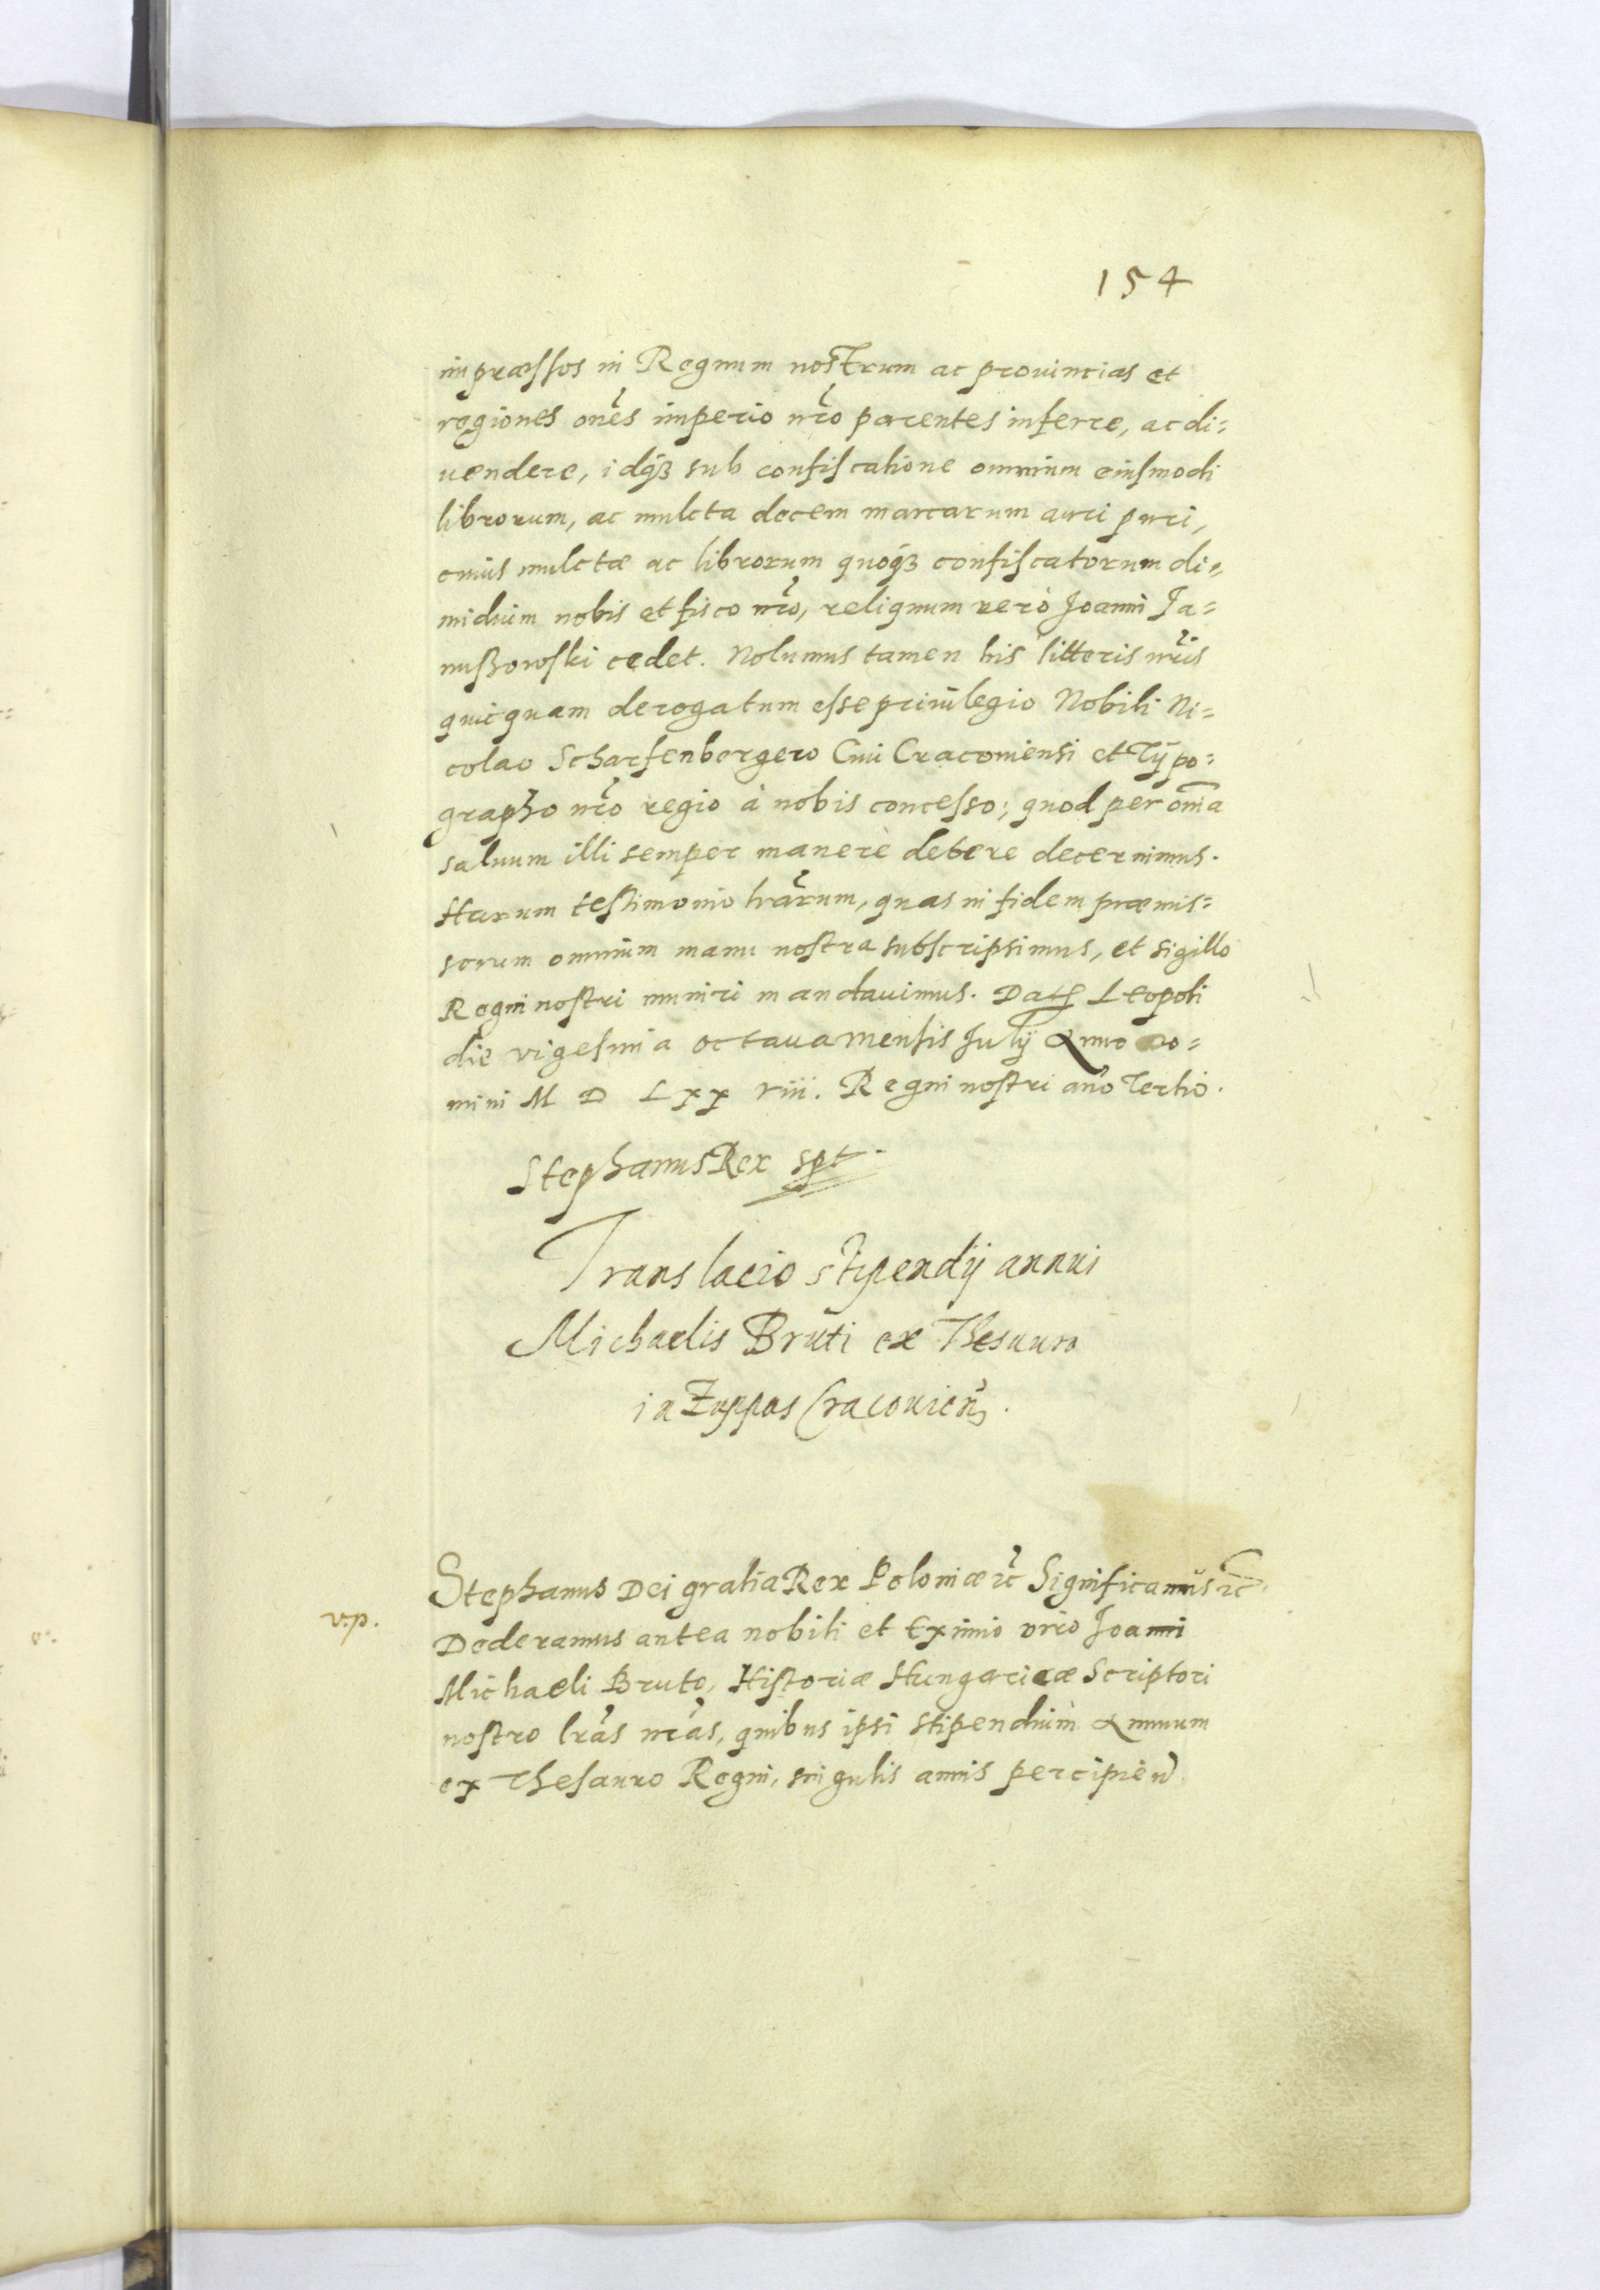 154
impræssos in Regnum nostrum ac prouincias et
regiones oñes imperio nr̃o parentes inferre, ac di=
uendere, idq́ꝫ sub confiscatione omnium eiusmodi
librorum, ac mulcta decem marcarum auri puri,
cuius mulctæ ac librorum quoq́ꝫ confiscatorum di=
midium nobis et fisco nr̃o, reliquum verò Joanni Ja=
nuszowski cedet. Nolumus tamen his litteris nr̃is
quicquam derogatum esse priuilegio Nobili Ni=
colao Scharfenbergero Ciui Cracouiensi et Typo=
grapho nr̃o regio à nobis concesso; quod per om̃ia
saluum illi semper manere debere decernimus.
Harum testimonio lr̃arum, quas in fidem præmis=
sorum omnium manu nostra subscripsimus, et sigillo
Regni nostri muniri mandauimus. Dat Leopoli
die vigesima octaua mensis Julij Anno Do=
mini M D Lxx viii. Regni nostri año Tertio.
Stephanus Rex spt.
Translacio stipendij annui
Michaelis Bruti ex Thesauro
in Zuppas Cracouieñ.
Stephanus Dei gratia Rex Poloniæ &c̃ Significamus &c̃.
v.p.
Dederamus antea nobili et Eximio viro Joanni
Michaeli Bruto, Historiæ Hungaricæ Scriptori
nostro lr̃as nr̃as, quibus ipsi stipendium Annuum
ex Thesauro Regni, singulis annis percipieñd